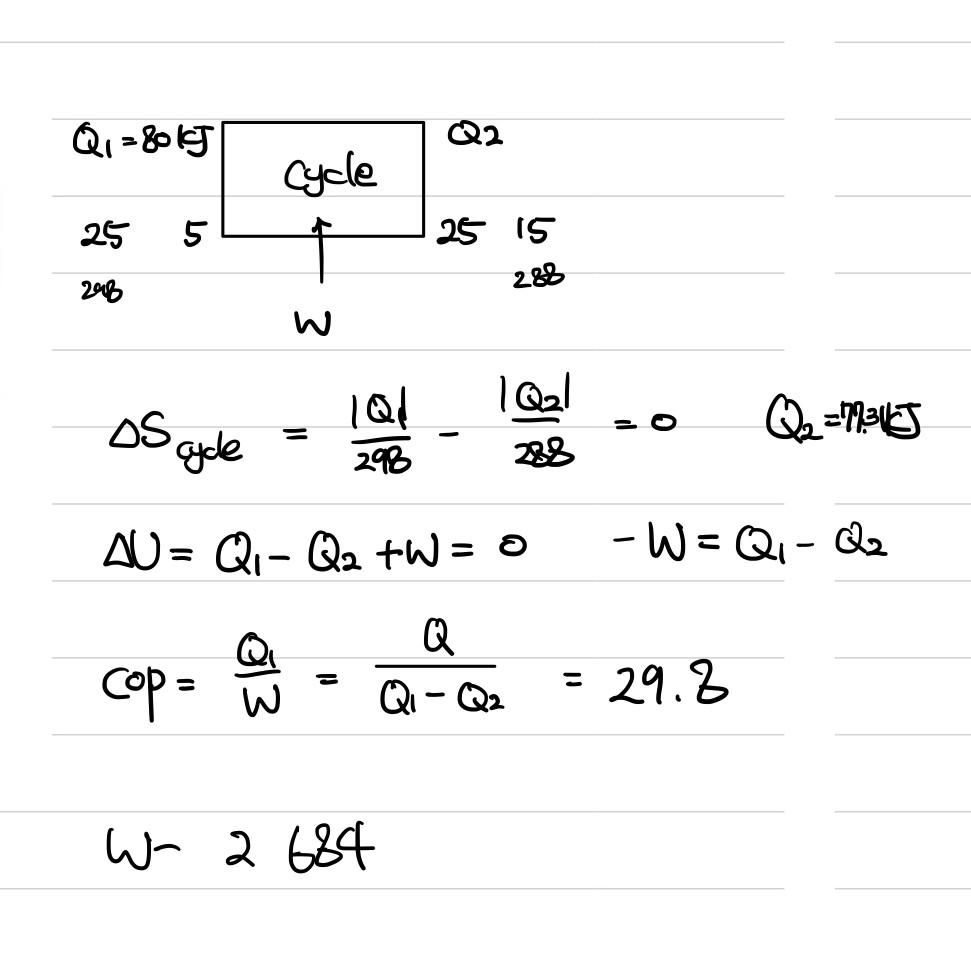 Q1 = 80 kJ cycle Q2
25 5 25 15
298 288
W
ΔS cycle = |Q1| / 298 - |Q2| / 288 = 0 Q2 = 77.31kJ
ΔU = Q1 - Q2 + W = 0 - W = Q1 - Q2
COP = Q1 / W = Q / Q1 - Q2 = 29.8
W- 2 684